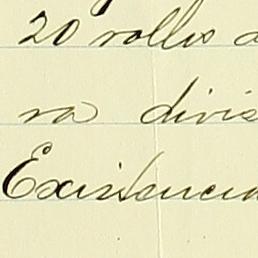 20 rollos d
ra divis
Existencia